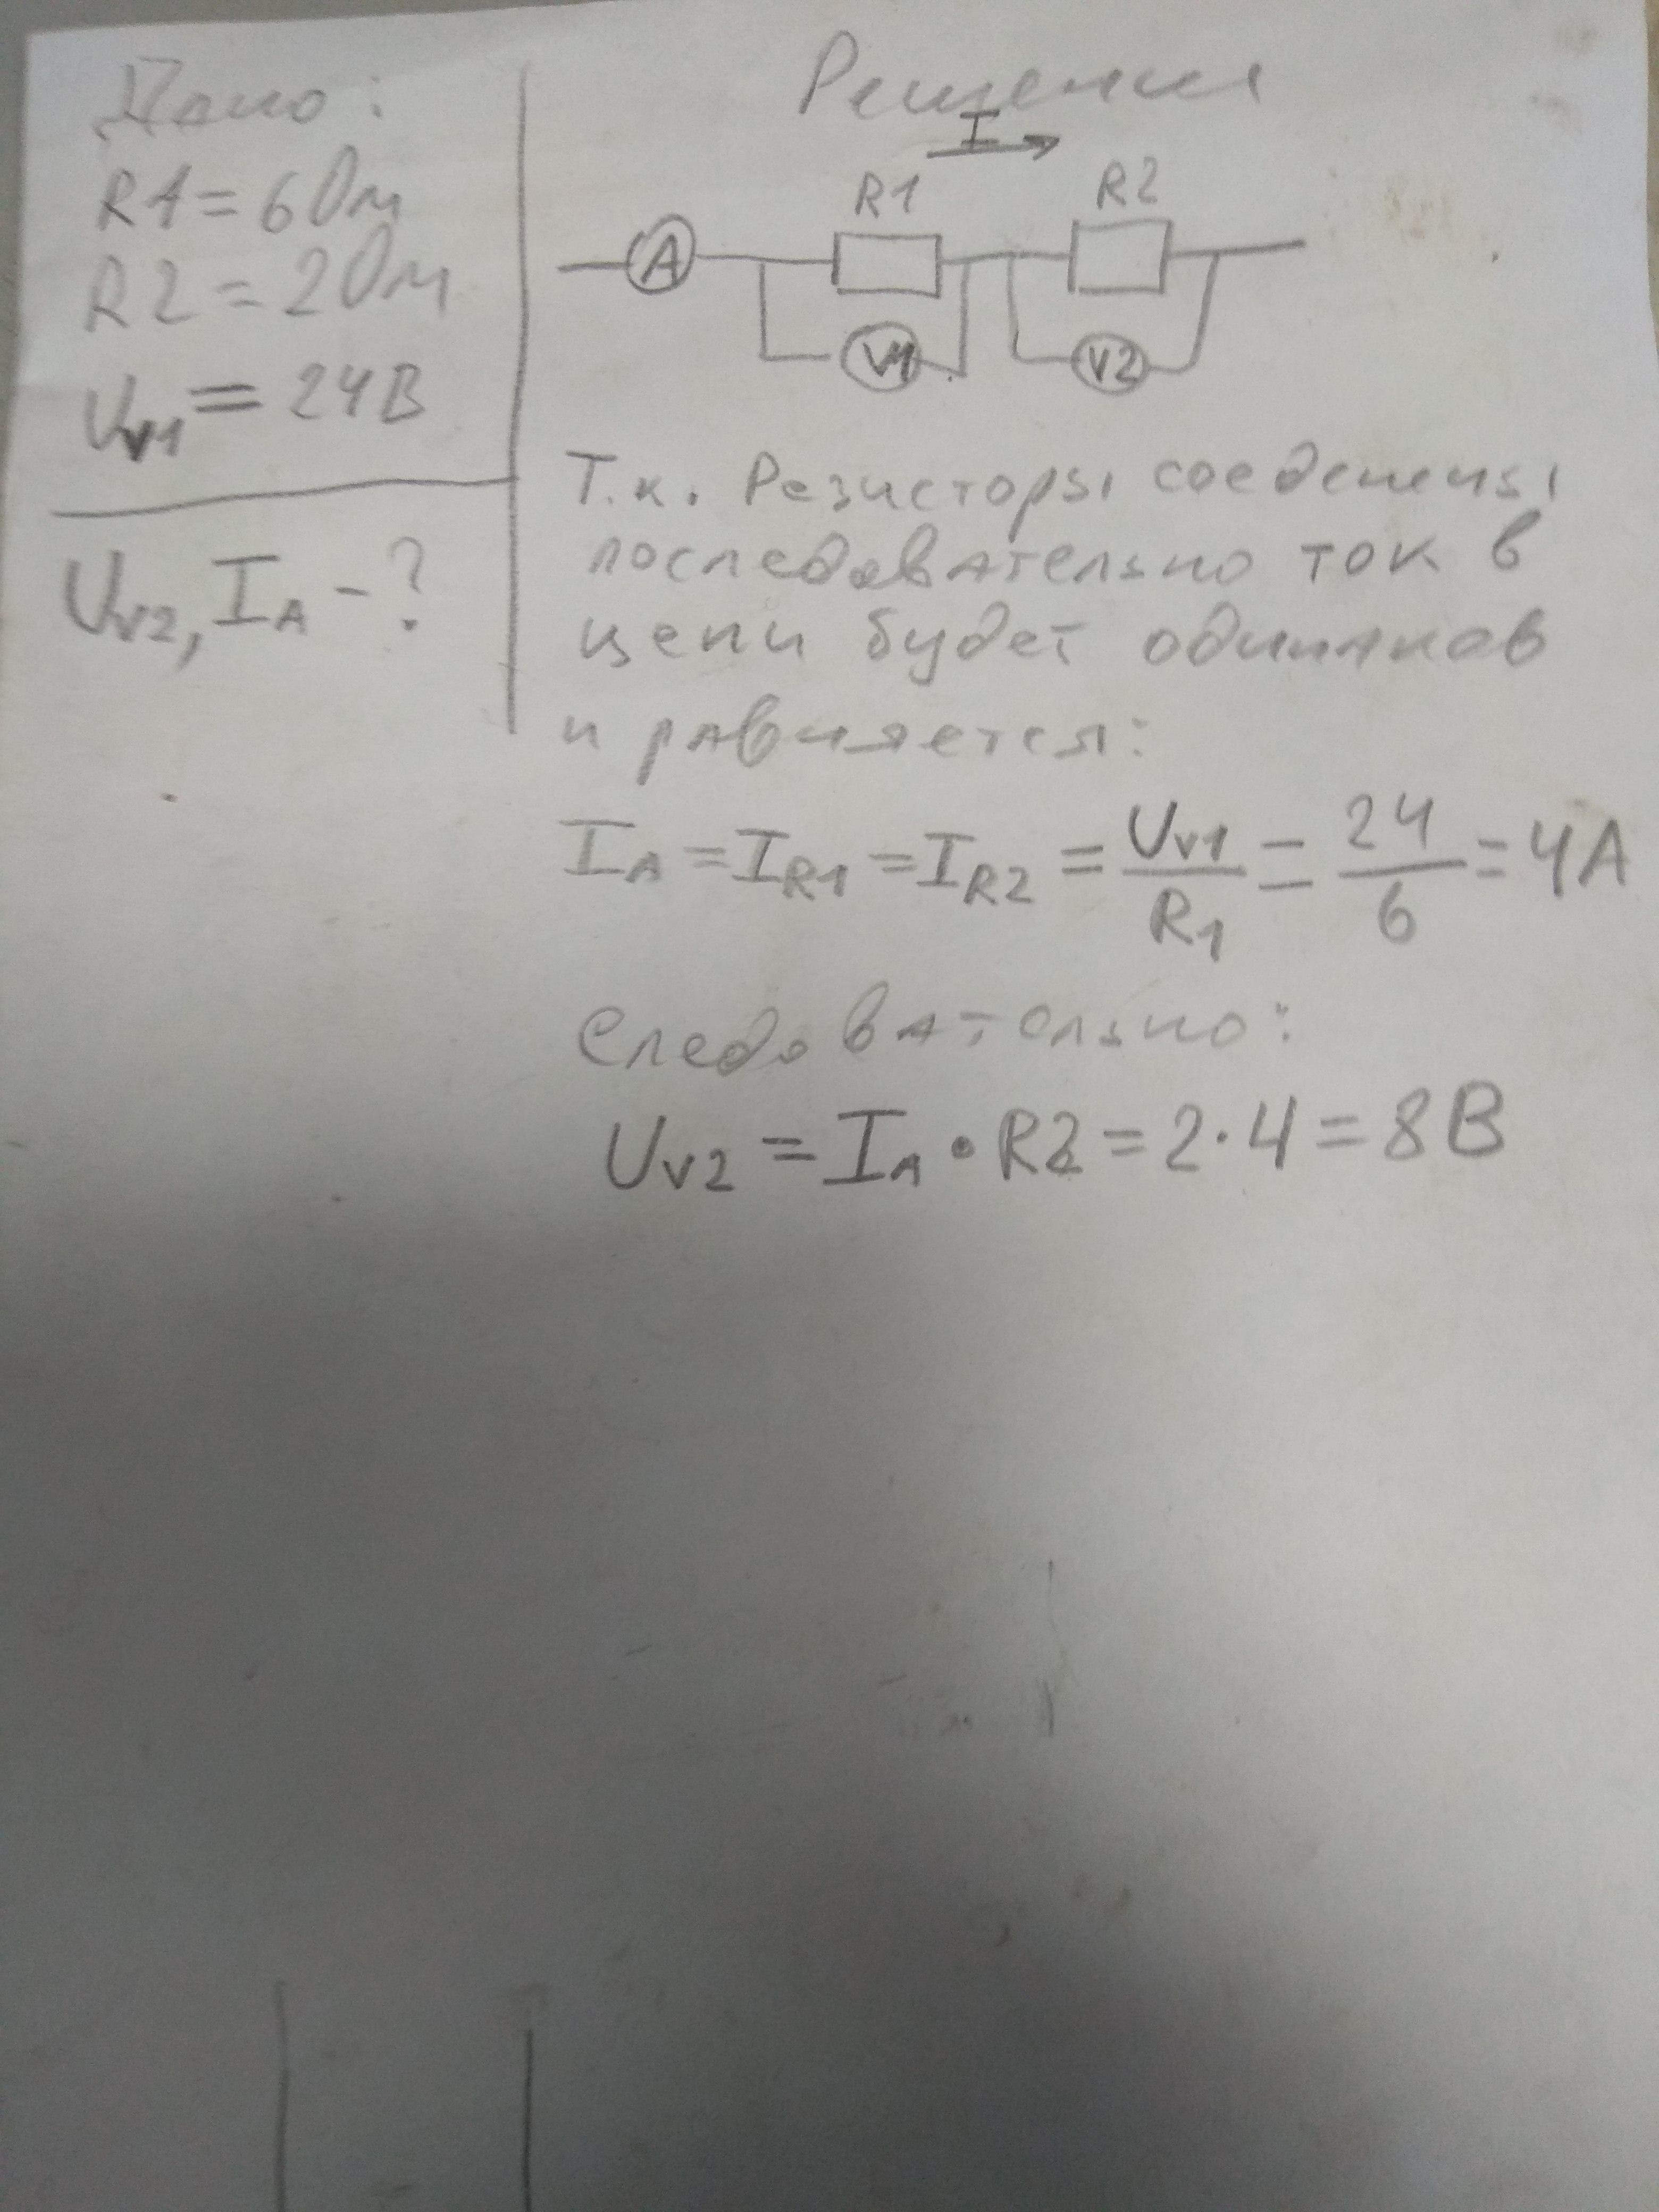 Дано:
R1 = 6 Ом
R2 = 2 Ом
Uv1 = 24 В
Uv2, IA - ?
Решение
I
R1 R2
A
V1 V2
Т.к. Резисторы соеденены
последовательно ток в
цепи будет одинаков
и равняется:
IA = IR1 = IR2 = Uv1/R1 = 24/6 = 4A
Следовательно:
Uv2 = IA • R2 = 2 · 4 = 8 В